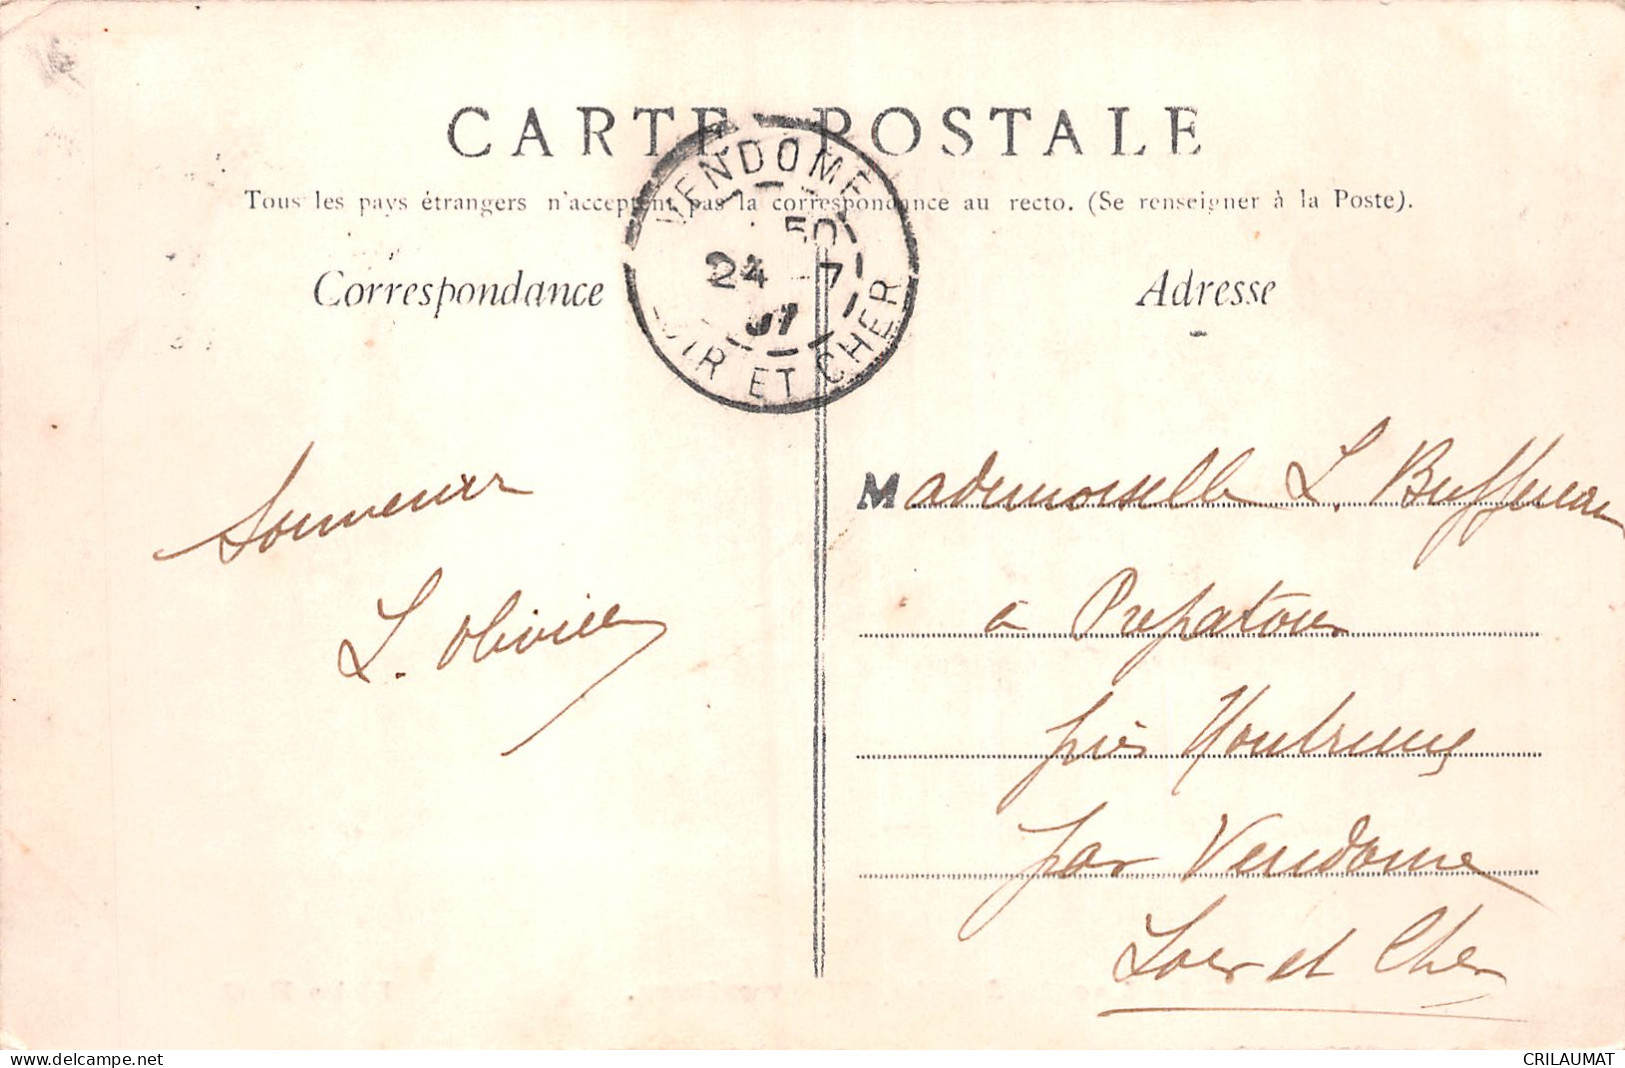 CARTE POSTALE
Tous les pays étrangers n'acceptent pas la correspondance au recto. (Se renseigner à la Poste).
Correspondance
Adresse
VENDOME
50
24 -7
07
LOIR ET CHER
Souvenir
L. Olivier
Mademoiselle L. Buffereau
à Prépatour
près
par Vendome
Loir et Cher
www.delcampe.net
CRILAUMAT